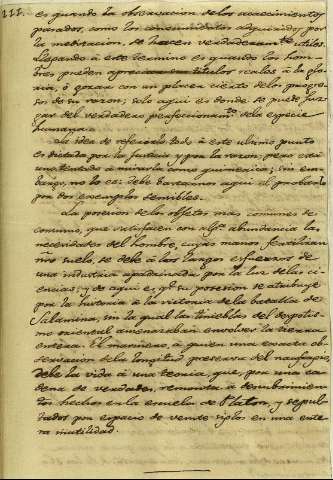 111.
es quando la observacion de los acaecimientos
pasados, como los conocimientos adquiridos por
la meditacion, se hacen verdaderamte. utiles.
Llegando à este termino es quando los hom-
bres pueden apreciar sus titulos reales à la glo-
ria, ò gozar con un placer cierto de los progre-
sos de su razon; solo aqui es donde se puede juz-
gar del verdadero perfeccionamto. de la especie
humana.
La idea de referirlo todo à este ultimo punto
es dictada por la justicia y por la razon; pero será
uno tentado à mirarla como quimerica; sin em-
bargo, no lo es; debe bastarnos aqui el probarlo
por dos exemplos sensibles.
La posesion de los objetos mas comunes de
consumo, que satisfacen con algª. abundancia las
necesidades del hombre, cuyas manos fertilizan
nro suelo, se debe à los largos esfuerzos de
una industria apadrinada por la luz de las ci-
encias; y de aqui es, qe. su posesion se atribuye
por la historia à la victoria de la batalla de
Salamina, sin la qual las tinieblas del despotis-
mo oriental amenazaban envolver la tierra
entera. El marinero, à quien una exacta ob-
servacion de la longitud preserva del naufragio
debe la vida à una teoria, que, por una ca-
dena de verdades, remonta à descubrimien-
tos hechos en la escuela de Platon, y sepul-
tados por espacio de veinte siglos en una ente-
ra inutilidad.